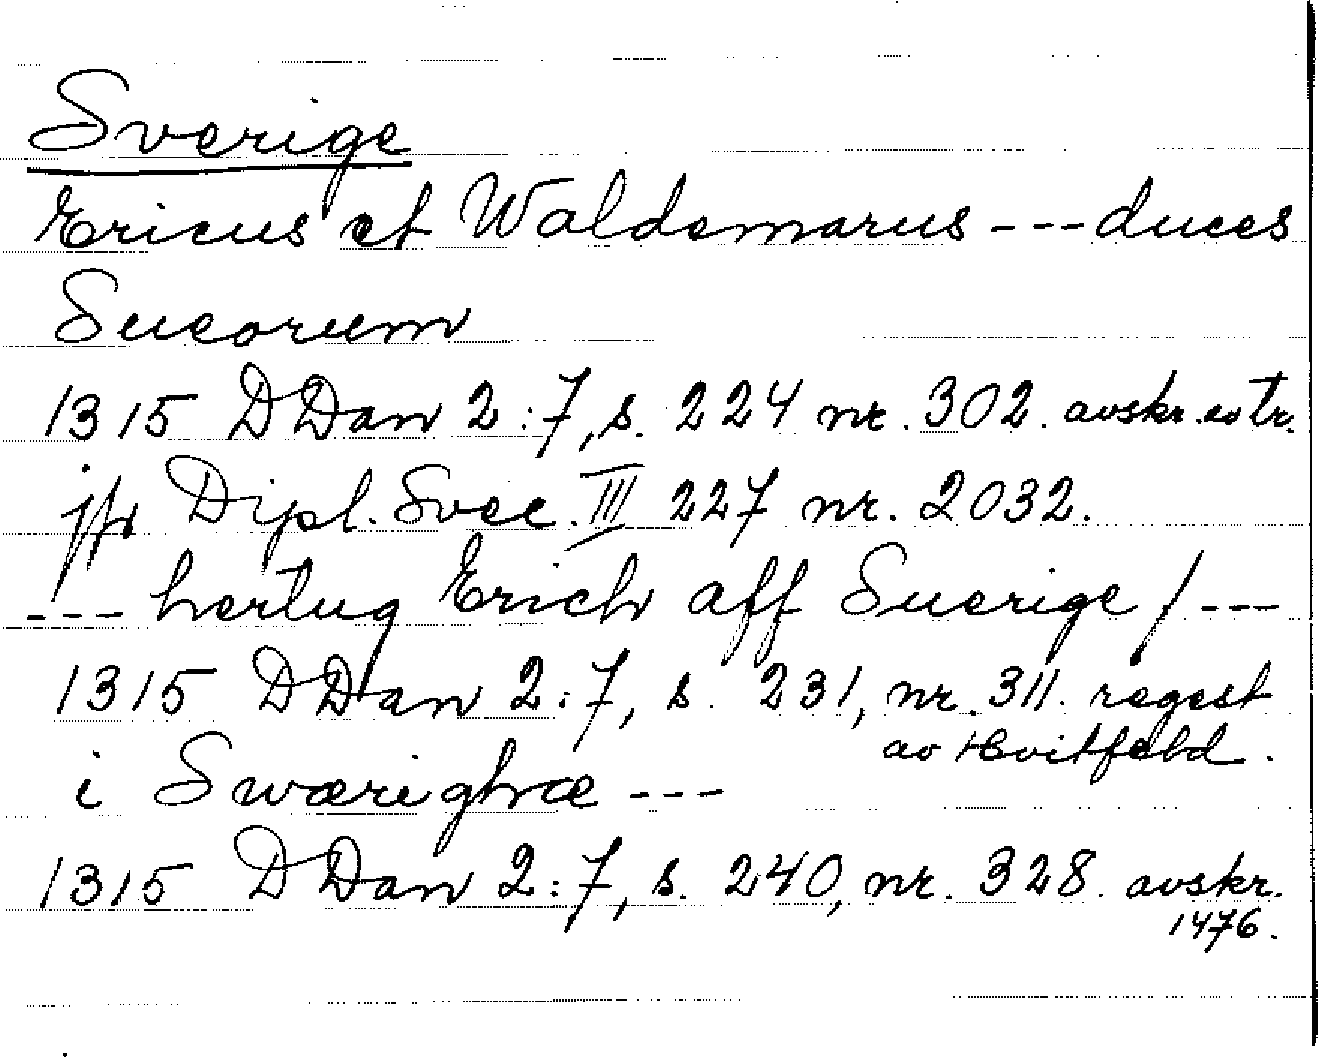 Sverige
Ericus et Waldemarus --- duces
Sueorum
1315 DDan 2:7, s. 224 nr. 302. avskr. extr.
jfr Dipl. Svec. III 227 nr. 2032.
--- hertug Erich aff Suerige / ---
1315 DDan 2:7, s. 231, nr. 311. regest
av Hvitfeld.
i Swærighæ ---
1315 DDan 2:7, s. 240, nr. 328. avskr.
1476.